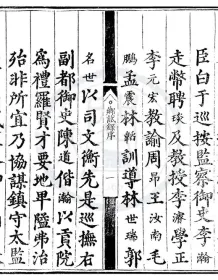 臣白于巡按監察御史李翰
走幣聘琰及教授李濬學正
李元宏教諭周昂王汝南毛
鵬孟震林韜訓導林世瑞郭
名世以司文衡先是巡撫右
副都御史陳道偕瀚以貢院
為禮羅賢才要地卑隘弗治
殆非所宜乃協謀鎮守太監